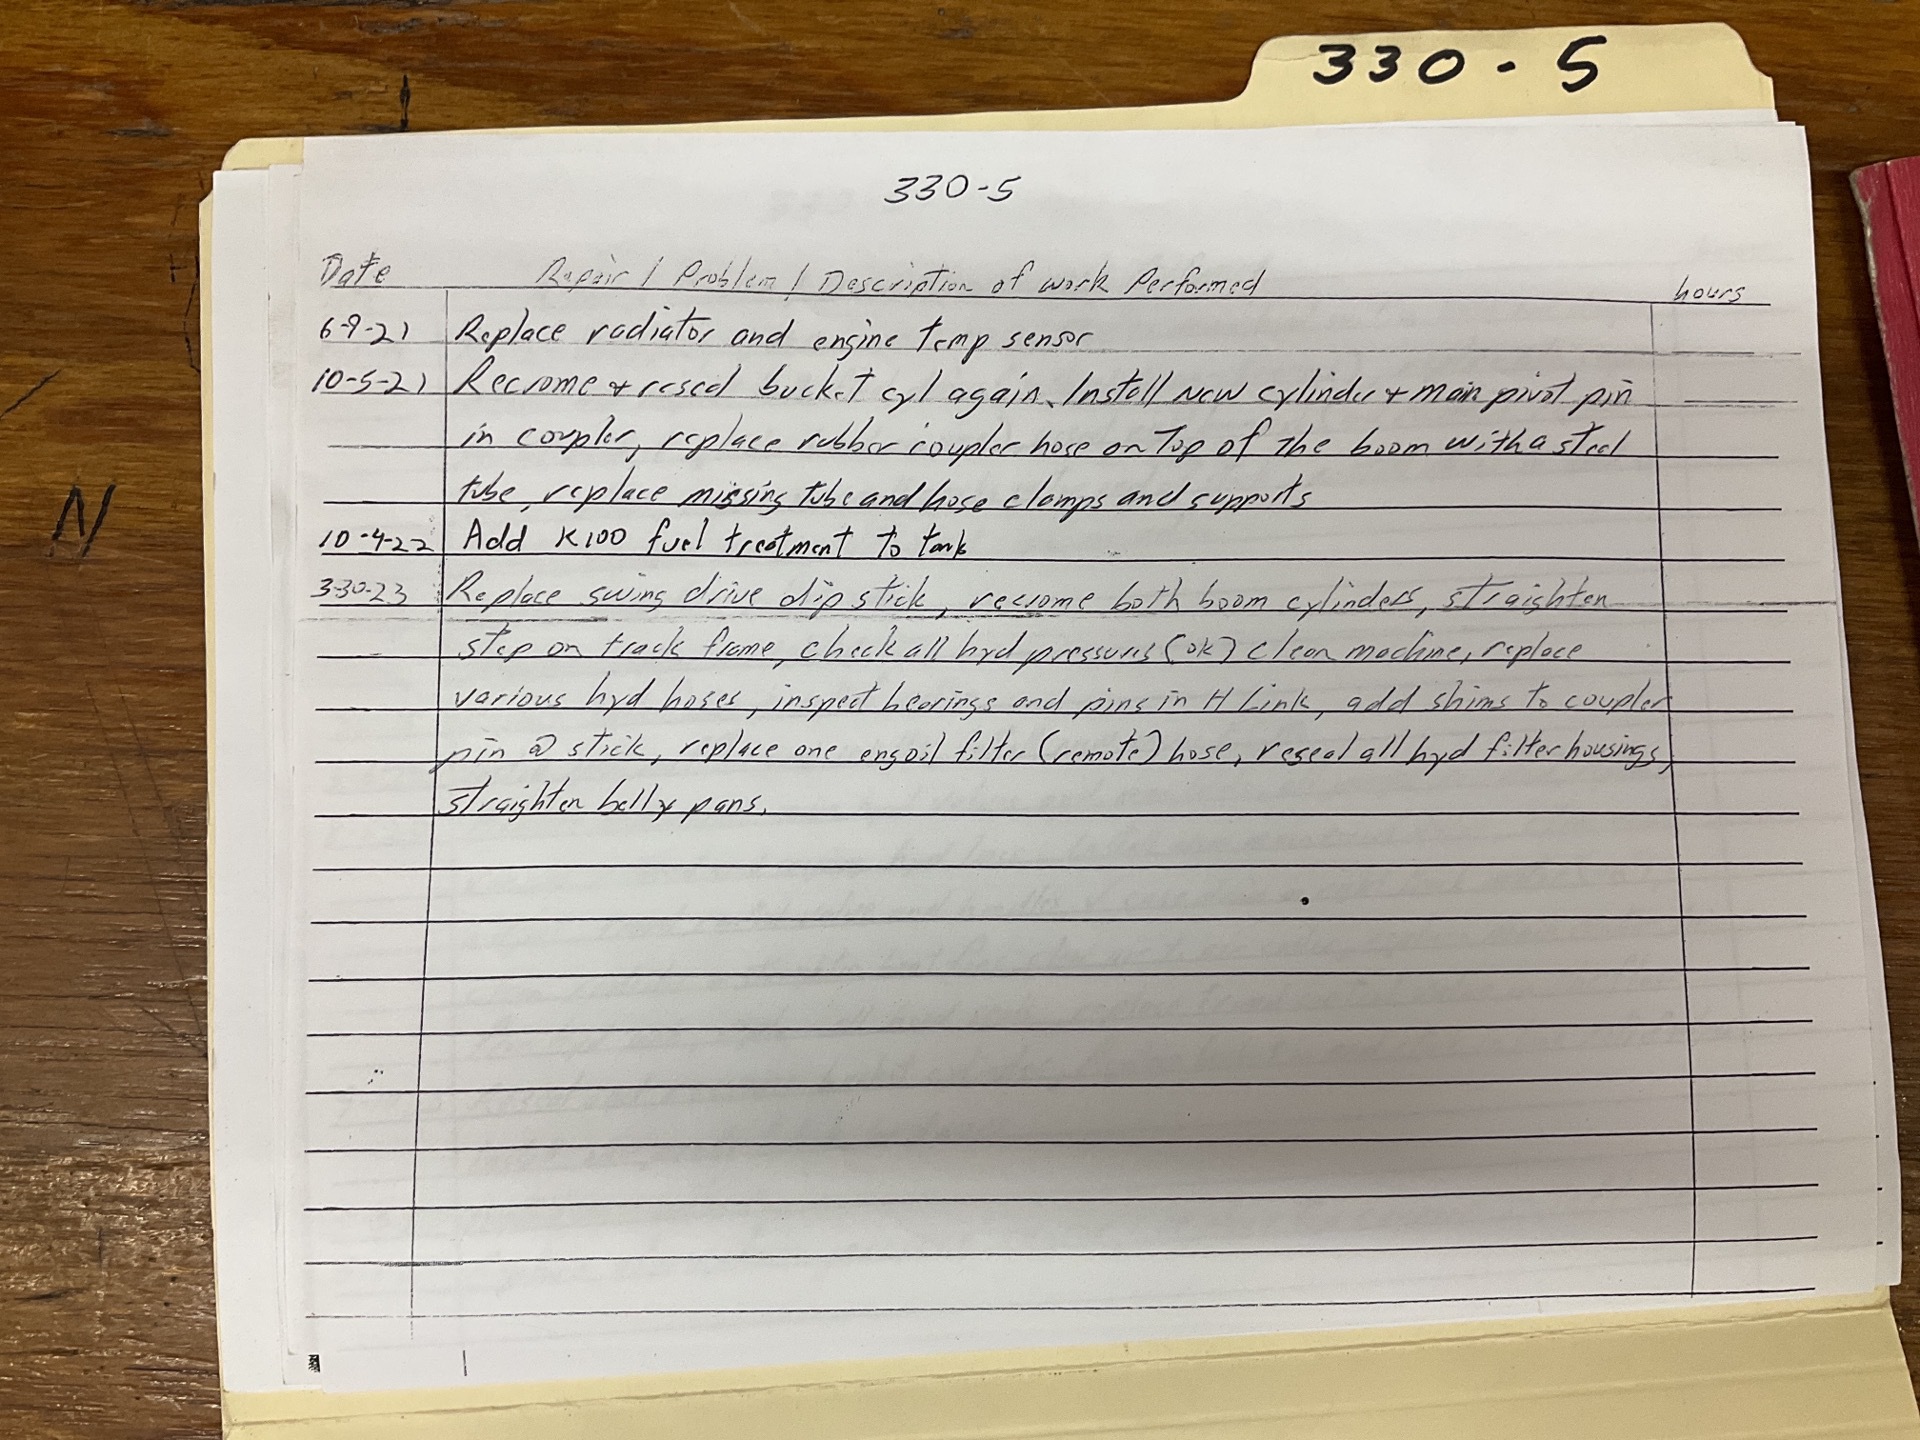 330-5
330-5
Date Repair / Problem / Description of work Performed hours
6-9-21 Replace radiator and engine temp sensor
10-5-21 Recrome + reseal bucket cyl again. Install new cylinder + main pivot pin
in coupler, replace rubber coupler hose on top of the boom with a steel
tube, replace missing tube and hose clamps and supports
10-4-22 Add K100 fuel treatment to tank
3-30-23 Replace swing drive dip stick, recrome both boom cylinders, straighten
step on track frame, check all hyd pressures (ok) clean machine, replace
various hyd hoses, inspect bearings and pins in H Link, add shims to coupler
pin @ stick, replace one eng oil filter (remote) hose, reseal all hyd filter housings,
straighten belly pans.
N